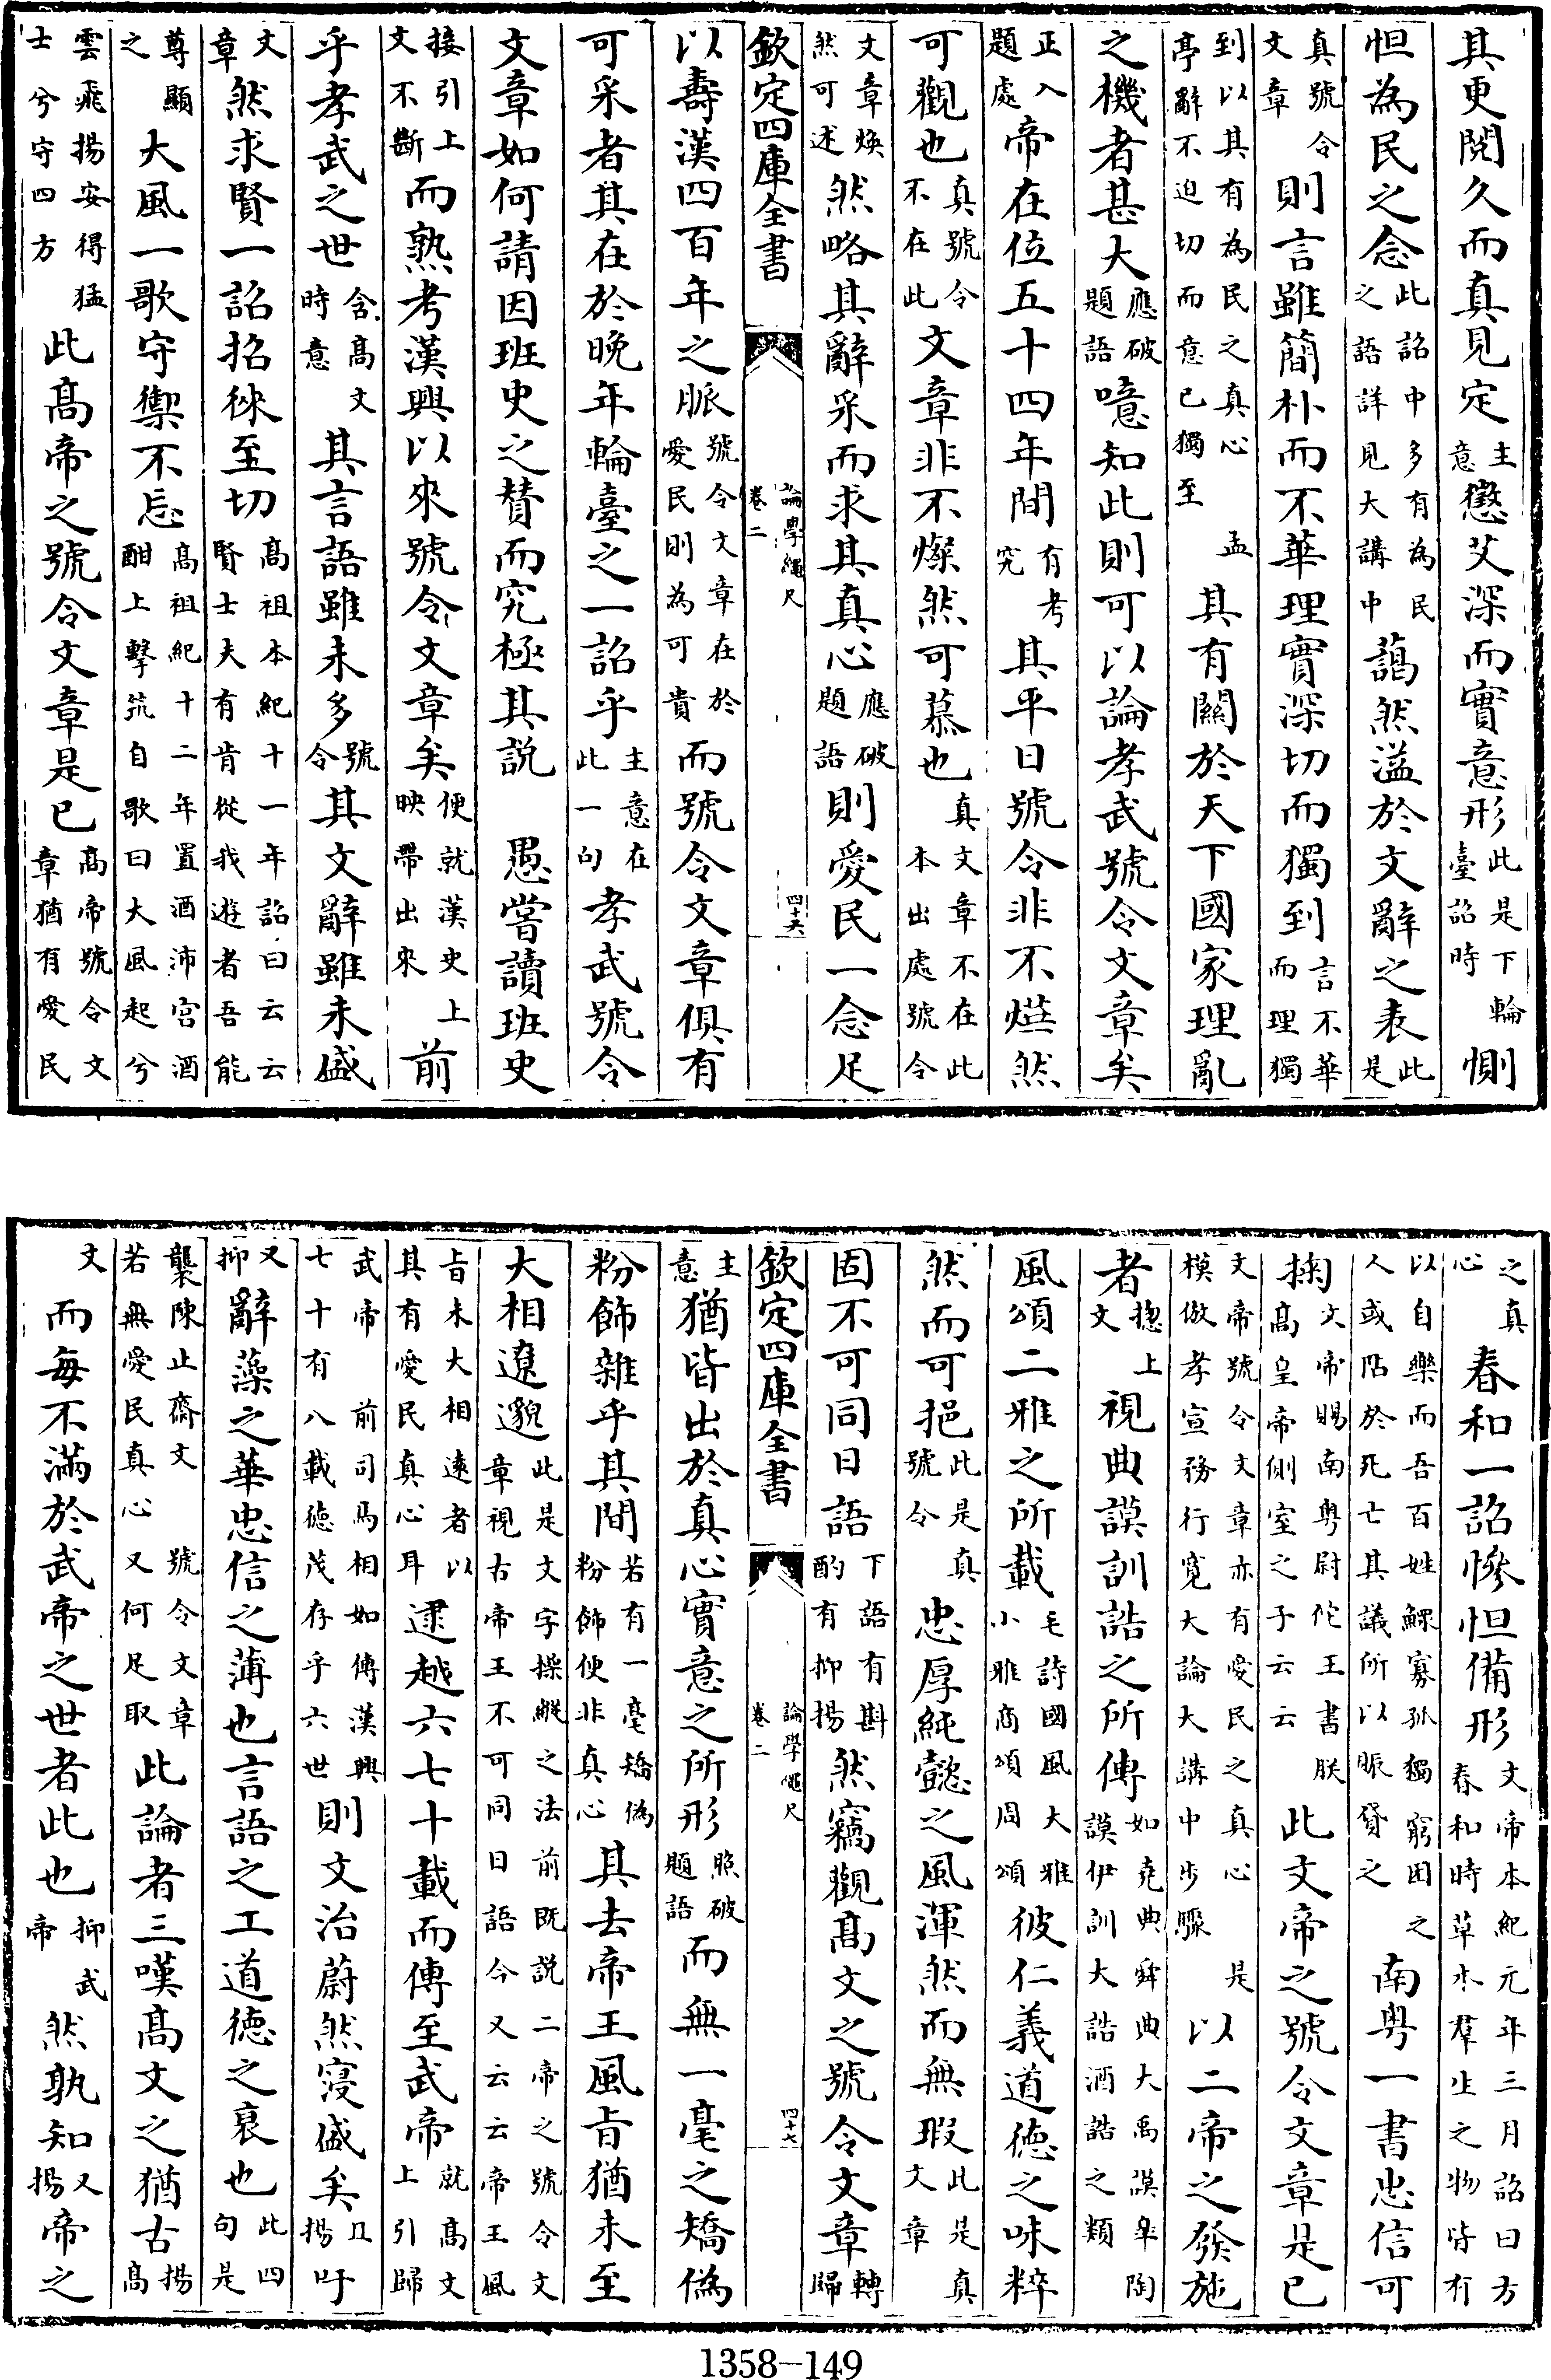 其更閱久而真見定主意懲艾深而實意形此是下輪臺詔時惻
怛為民之念此詔中多有為民之語詳見大講中藹然溢於文辭之表此是
真號令文章則言雖簡朴而不華理實深切而獨到言不華而理獨
到以其有為民之真心亭辭不迫切而意已獨至孟其有關於天下國家理亂
之機者甚大應破題語噫知此則可以論孝武號令文章矣
正入題處帝在位五十四年間有考究其平日號令非不燁然
可觀也真號令不在此文章非不燦然可慕也真文章不在此本出處號令
文章煥然可述然略其辭采而求其真心應破題語則愛民一念足
欽定四庫全書 論學繩尺卷二 四十六
以壽漢四百年之脈號令文章在於愛民則為可貴而號令文章俱有
可采者其在於晚年輪臺之一詔乎主意在此一句孝武號令
文章如何請因班史之贊而究極其説 愚嘗讀班史
接引上文不斷而熟考漢興以來號令文章矣便就漢史上映帶出來前
乎孝武之世含高文時意其言語雖未多號令其文辭雖未盛
文章然求賢一詔招徠至切高祖本紀十一年詔曰云云賢士夫有肯從我遊者吾能
尊顯之大風一歌守禦不忘高祖紀十二年置酒沛宮酒酣上擊筑自歌曰大風起兮
雲飛揚安得猛士兮守四方此高帝之號令文章是已高帝號令文章猶有愛民
之真心春和一詔慘怛備形文帝本紀元年三月詔曰方春和時草木羣生之物皆有
以自樂而吾百姓鰥寡孤獨窮困之人或阽於死亡其議所以賑貸之南粤一書忠信可
掬文帝賜南粤尉佗王書朕高皇帝側室之子云云此文帝之號令文章是已
文帝號令文章亦有愛民之真心是模倣孝宣務行寛大論大講中步驟以二帝之發施
者摠上文視典謨訓誥之所傳如堯典舜典大禹謨臯陶謨伊訓大誥酒誥之類
風頌二雅之所載毛詩國風大雅小雅商頌周頌彼仁義道德之味粹
然而可挹此是真號令忠厚純懿之風渾然而無瑕此是真文章
固不可同日語下語有斟酌有抑揚然竊觀高文之號令文章轉歸
欽定四庫全書 論學繩尺卷二 四十七
主意猶皆出於真心實意之所形照破題語而無一毫之矯偽
粉飾雜乎其間若有一毫矯偽粉飾便非真心其去帝王風㫖猶未至
大相遼邈此是文字操縱之法前既説二帝之號令文章視古帝王不可同日語今又云云帝王風
㫖未大相遠者以其有愛民真心耳逮越六七十載而傳至武帝就高文上引歸
武帝 前司馬相如傳漢興七十有八載德茂存乎六世則文治蔚然寖盛矣且揚吁
又抑辭藻之華忠信之薄也言語之工道德之衰也此四句是
襲陳止齋文 號令文章若無愛民真心又何足取此論者三嘆高文之猶古揚高
文而每不滿於武帝之世者此也抑武帝然孰知又揚帝之
1358-149